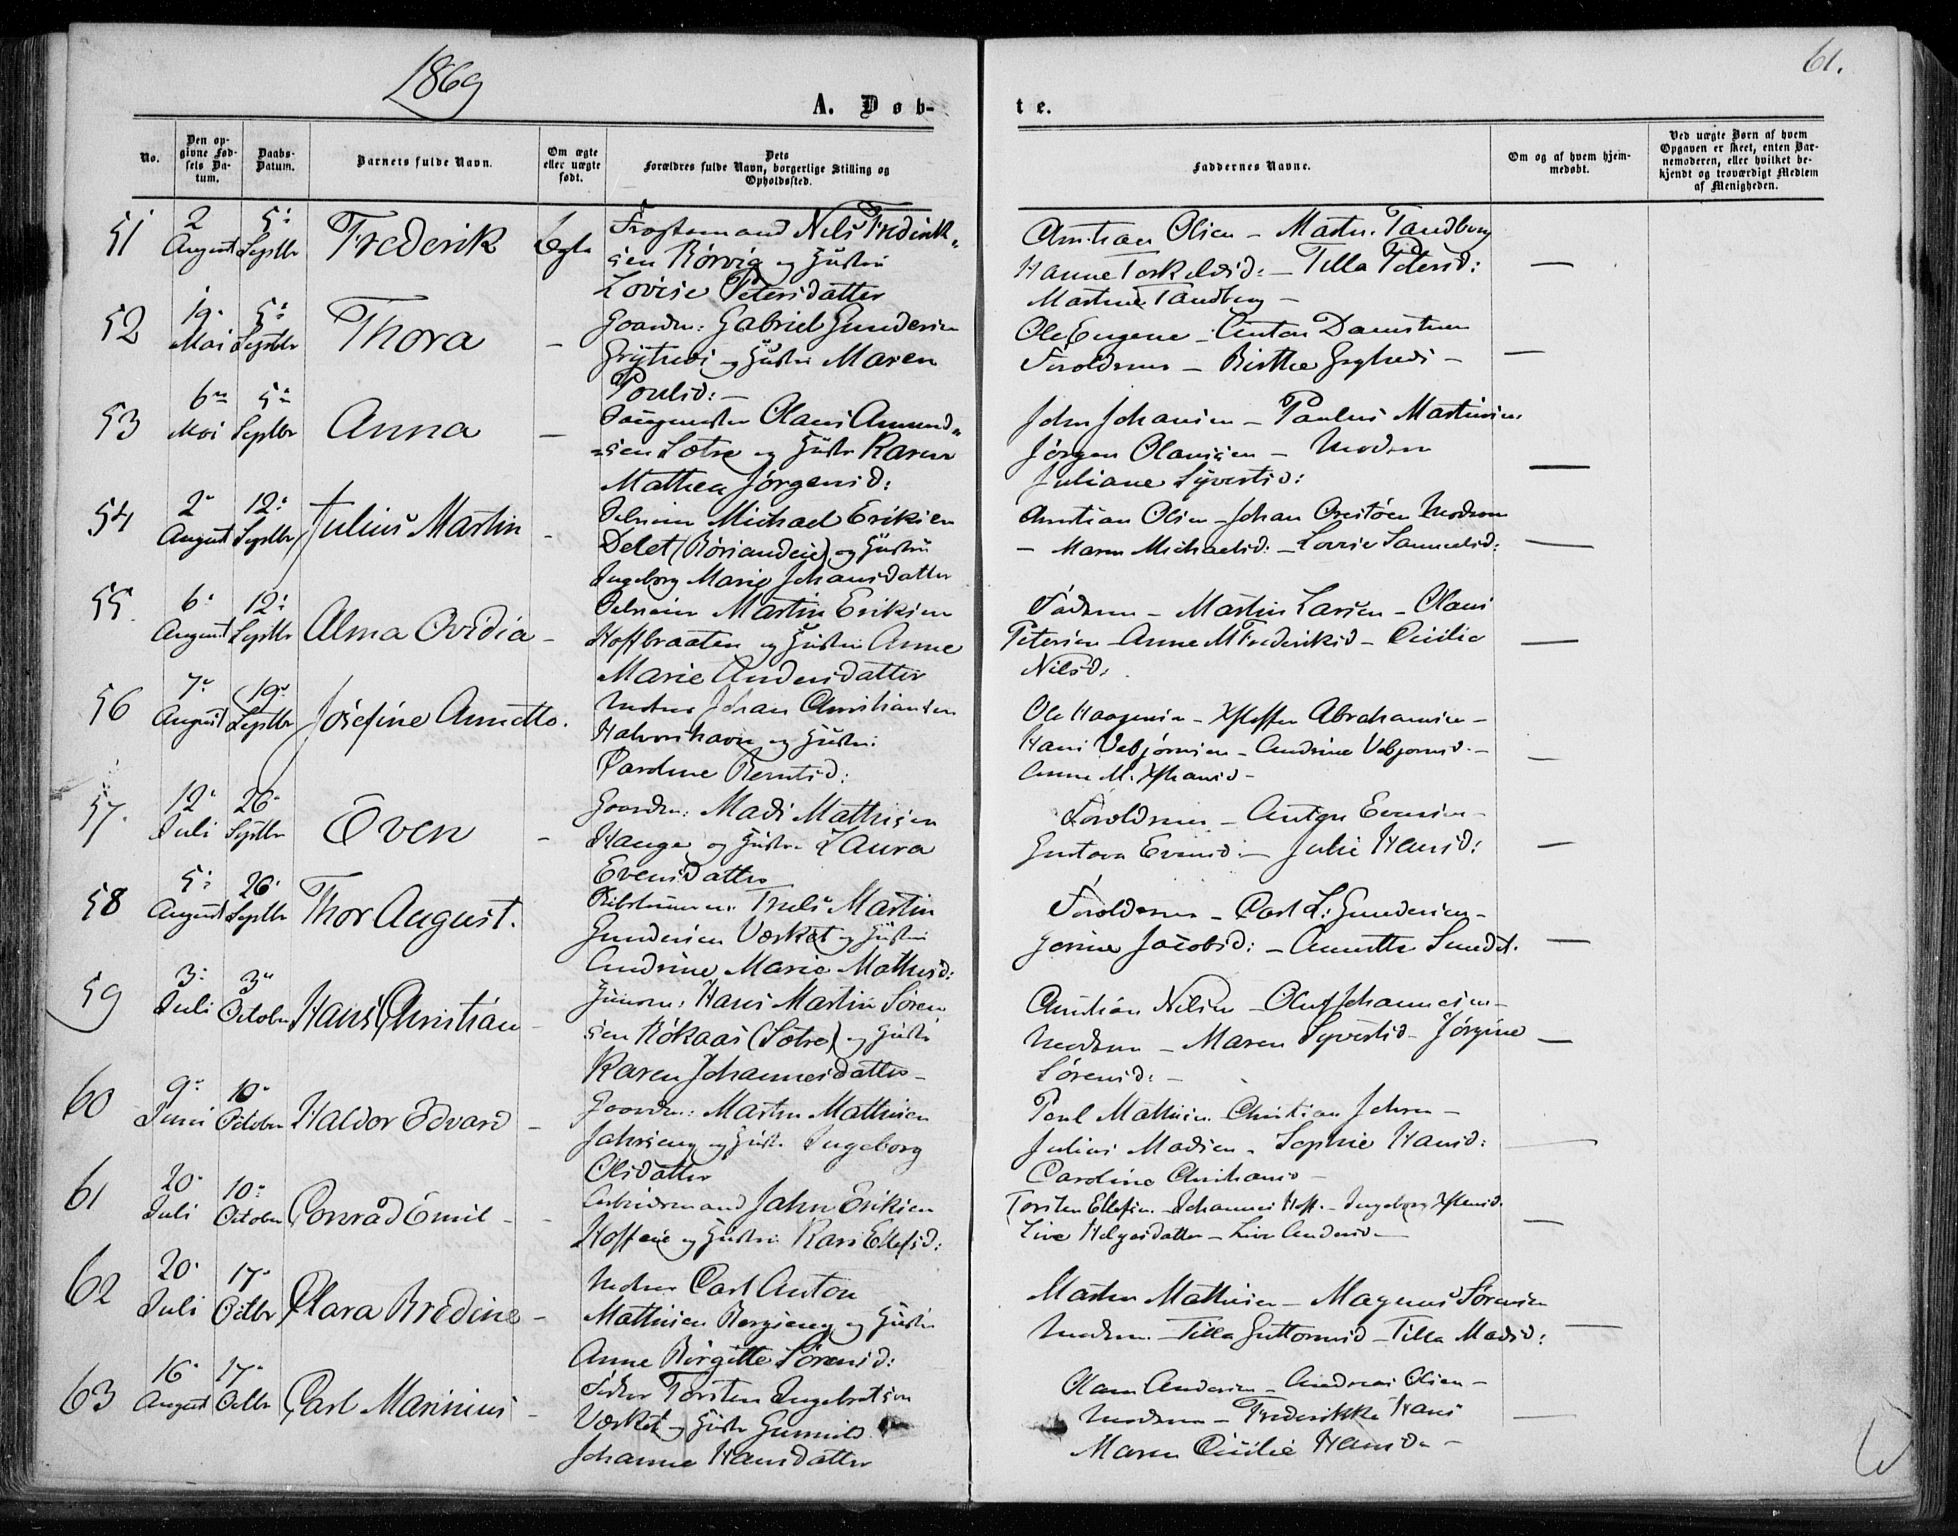 1869
61.
A. Døb-
te.
No.
Den op-
givne Fød-
sels Da-
tum.
Daabs-
Datum.
Barnets fulde Navn.
Om ægte
eller uægte
født.
Dets
Forældres fulde Navn, borgerlige Stilling og
Opholdssted.
Faddernes Navne.
Om og af hvem hjem-
medøbt.
Ved uægte Børn af hvem
Opgaven er skeet, enten Bar-
nemoderen, eller hvilket be-
kjendt og troværdigt Medlem
af Menigheden.
51 2 August 5 Septbr Frederik Ægte
Nils Fredrik-
sen Rørvig og Hustru
Lovise Petersdatter
Christian Olsen - Martin Tandberg
Hanne Torkelsd: - Tilla Petersd:
Martine Tandberg -
52 19 Mai 5 Septbr Thora -
Gaardm: Gabriel Gundersen
og Hustru Maren
Poulsd: -
Ole Eugene - Anton
Forældrene - Birthe
53 6 Mai 5 Septbr Anna -
Olaus Amund-
sen Sætre og Hustr Karen
Mathea Jørgensd:
John Johansen - Paulus Martinsen
Jørgen Olaussen - Modren
Juliane Syvertsd:
54 2 August 12 Septbr Julius Martin -
Michael Eriksen
og Hustru
Ingeborg Marie Johansdatter
Christian Olsen - Johan Modren
- Maren Michaelsd: - Lovise Samuelsd:
55 6 August 12 Septbr Alma Ovidia -
Martin Eriksen
Hoffbraaten og Hustru Anne
Marie Andersdatter
Fadren - Martin Larsen - Olaus
Petersen - Anne M Frederiksd - Cicilie
Nilsd:
56 7 August 19 Septbr Josefine Annette.
Johan Christiansen
Halvorshavn og Hustru
Caroline Berntsd:
Ole Haagensen - Abrahamsen -
Hans Vebjørnsen - Andrine Vebjørnsd. -
Anne M.
57. 12 Juli 26 Septbr Even -
Gaardm: Mads Mathisen
Hauge og Hustru Laura
Evensdatter
Forældrene - Anton Evensen -
Gustava Evensd: - Julie Hansd:
58 5 August 26 Septbr Thor August.
Truls Martin
Gundersen Værket og Hustru
Andrine Marie Mathisd:
Forældrene - Carl L: Gundersen -
Jacobsd: - Annette
59 3 Juli 3 October Hans Christian -
Hans Martin Søren
sen Røkaas (Sætre) og Hustr
Karen Johannesdatter -
Christian Nilsen - Oluf Johannesen -
Modren - Maren Syvertsd - Jørgine
Sørensd: -
60 9 Juni 10 October Haldor Edvard -
Gaardm: Martin Mathisen
og Hustr. Ingeborg
Olsdatter
Poul Mathisen. Christian -
Julius Madsen - Sophie Hansd:
Caroline Christiansd -
61 20 Juli 10 October Conrad Emil -
Arbeidsmand John Eriksen
Hoffeie og Hustru Kari Ellefsd:
Torsten Ellefsen - Johannes Hoff. - Ingeborg
Live Helgesdatter - Live Andersd -
62 20 Juli 17 Octbr Clara Bredine -
Carl Anton
Mathisen Bergseng og Hustru
Anne Birgitte Sørensd:
Martin Mathisen - Magnus Sørensen
Modren. - Tilla Guttormsd - Tilla Madsd:
63 16 August 17 Octbr Carl Marinius -
Torsten Ingebretsen
Værket og Hustr Gunnild
Johanne Hansdatter
Olaus Andersen - Andreas Olsen -
Modren - Frederikke Hans
Maren Cicilie Hansd -